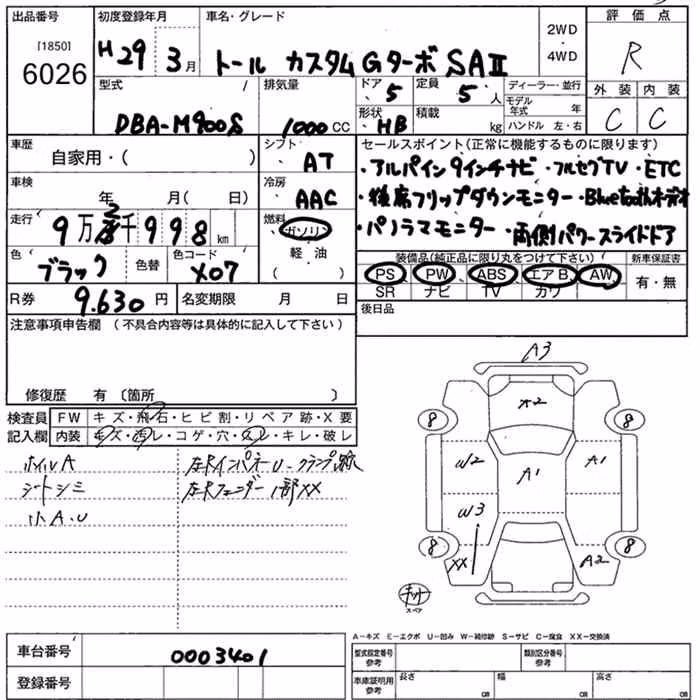 出品番号
[1850]
6026
初度登録年月
H29 3月
車名・グレード
トール カスタムGターボ SAⅡ
2WD
・
4WD
評価点
R
外装 内装
C C
型式 /
DBA-M900S
排気量
1000 CC
ドア 5
形状 HB
定員 5 人
積載 kg
ディーラー・並行
モデル年式 年
ハンドル 左・右
車歴
自家用・( )
シフト
AT
車検
年 月( 日)
冷房
AAC
走行
9万2千998km
燃料
ガソリン
軽油
( )
色
ブラック
色替
色コード
X07
R券 9.630 円
名変期限 月 日
セールスポイント(正常に機能するものに限ります)
・アルパイン9インチナビ ・フルセグTV ・ETC
・後席フリップダウンモニター ・Bluetoothオーデオ
・パノラマモニター ・両側パワースライドドア
装備品(純正品に限り丸をつけて下さい)
PS PW ABS エアB AW
SR ナビ TV カワ
新車保証書
有・無
後日品
注意事項申告欄 (不具合内容等は具体的に記入して下さい)
修復歴 有 〔箇所 〕
検査員記入欄
FW キズ・飛石・ヒビ割・リペア跡・X要
内装 キズ・汚レ・コゲ・穴・スレ・キレ・破レ
ホイルA
シートシミ
小A.U
左Fインパネ U・クランプ跡
左Fフェンダー 1部XX
A3
A2
8 8
W2
A1
A1
W3
8 8
XX
A2
スペア
A-キズ E-エクボ U-凹み W-補修跡 S-サビ C-腐食 XX-交換済
車台番号 0003401
登録番号
型式指定番号参考
類別区分番号参考
車庫証明用参考
長さ cm
幅 cm
高さ cm